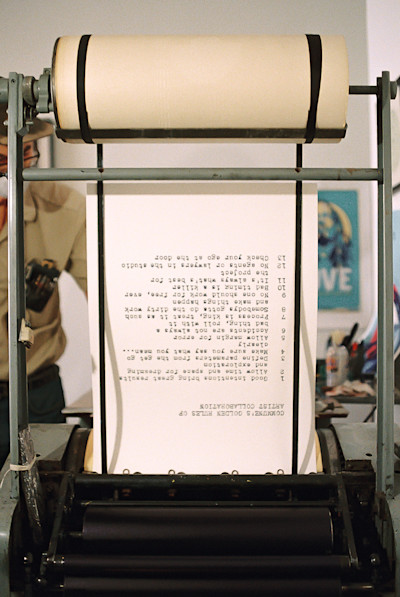 COMMUNE'S GOLDEN RULES OF
ARTIST COLLABORATION
1 Good intentions bring great results
2 Allow time and space for dreaming
and exploration
3 Define parameters from the get go
4 Make sure you say what you mean...
clearly
5 Allow margin for error
6 Accidents are not always a
bad thing, roll with it
7 Process is king, treat it as such
8 Somebody gotta do the dirty work
and make things happen
9 No one should work for free, ever
10 Bad timing is a killer
11 It's always what's best for
the project
12 No agents or lawyers in the studio
13 Check your ego at the door
VE